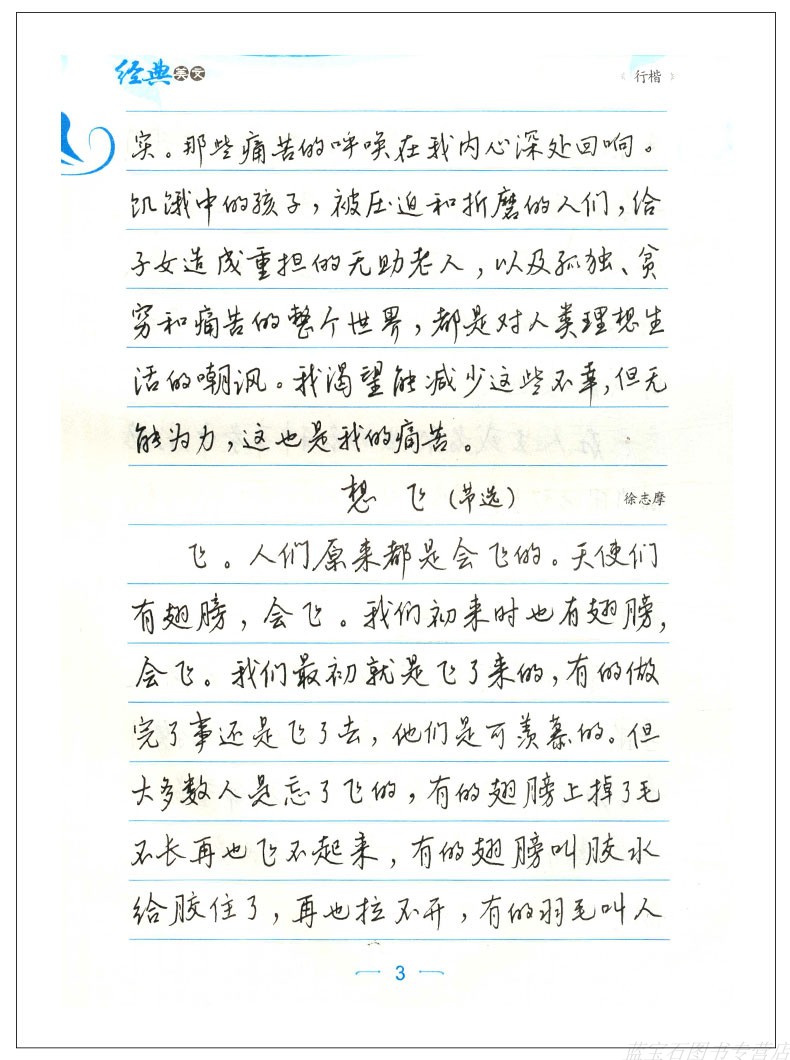 经典美文
行楷
实。那些痛苦的呼唤在我内心深处回响。
饥饿中的孩子，被压迫和折磨的人们，给
子女造成重担的无助老人，以及孤独、贫
穷和痛苦的整个世界，都是对人类理想生
活的嘲讽。我渴望能减少这些不幸，但无
能为力，这也是我的痛苦。
想 飞（节选） 徐志摩
飞。人们原来都是会飞的。天使们
有翅膀，会飞。我们初来时也有翅膀，
会飞。我们最初就是飞了来的，有的做
完了事还是飞了去，他们是可羡慕的。但
大多数人是忘了飞的，有的翅膀上掉了毛
不长再也飞不起来，有的翅膀叫胶水
给胶住了，再也拉不开，有的羽毛叫人
3
蓝宝石图书专营店